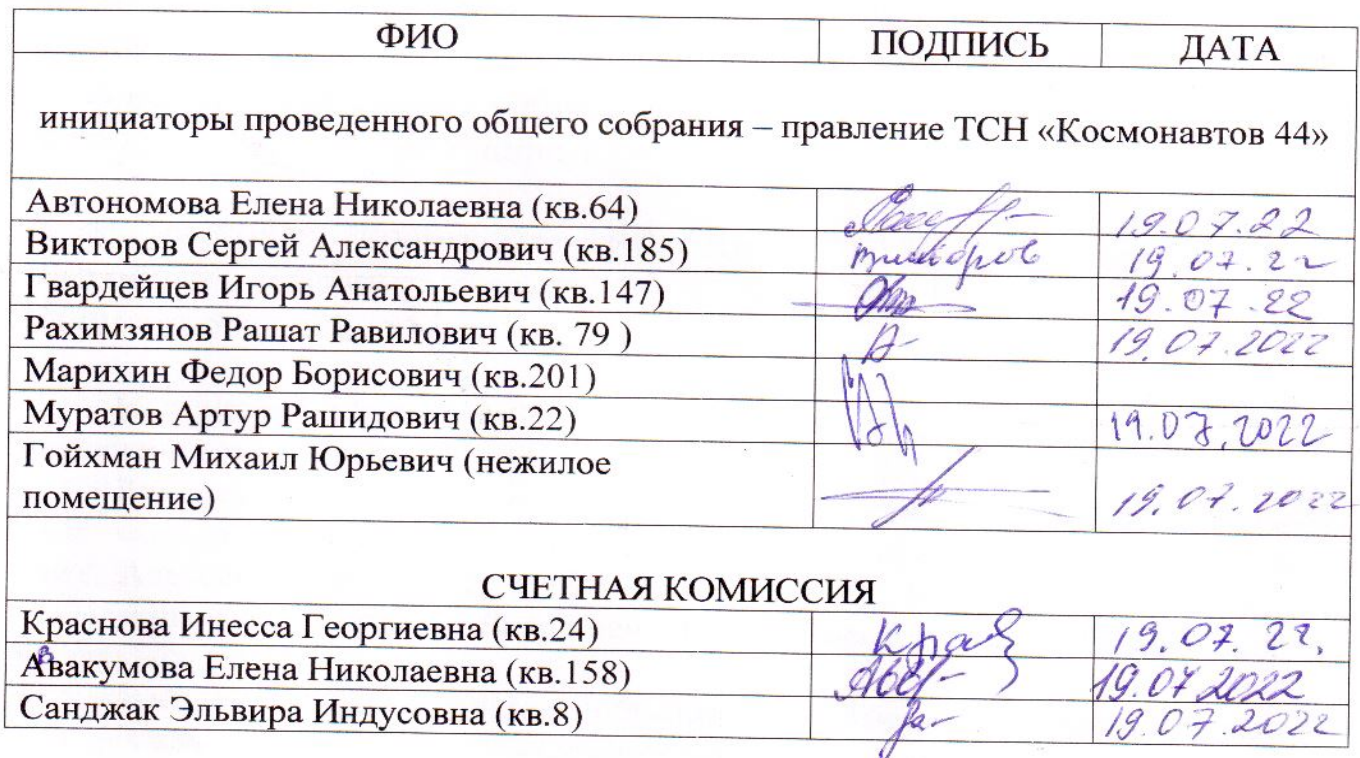 ФИО ПОДПИСЬ ДАТА
инициаторы проведенного общего собрания – правление ТСН «Космонавтов 44»
Автономова Елена Николаевна (кв.64) 19.07.22
Викторов Сергей Александрович (кв.185) 19.07.22
Гвардейцев Игорь Анатольевич (кв.147) 19.07.22
Рахимзянов Рашат Равилович (кв. 79 ) 19.07.2022
Марихин Федор Борисович (кв.201)
Муратов Артур Рашидович (кв.22) 19.07.2022
Гойхман Михаил Юрьевич (нежилое
помещение) 19.07.2022
СЧЕТНАЯ КОМИССИЯ
Краснова Инесса Георгиевна (кв.24) 19.07.22.
Авакумова Елена Николаевна (кв.158) 19.07.2022
Санджак Эльвира Индусовна (кв.8) 19.07.2022